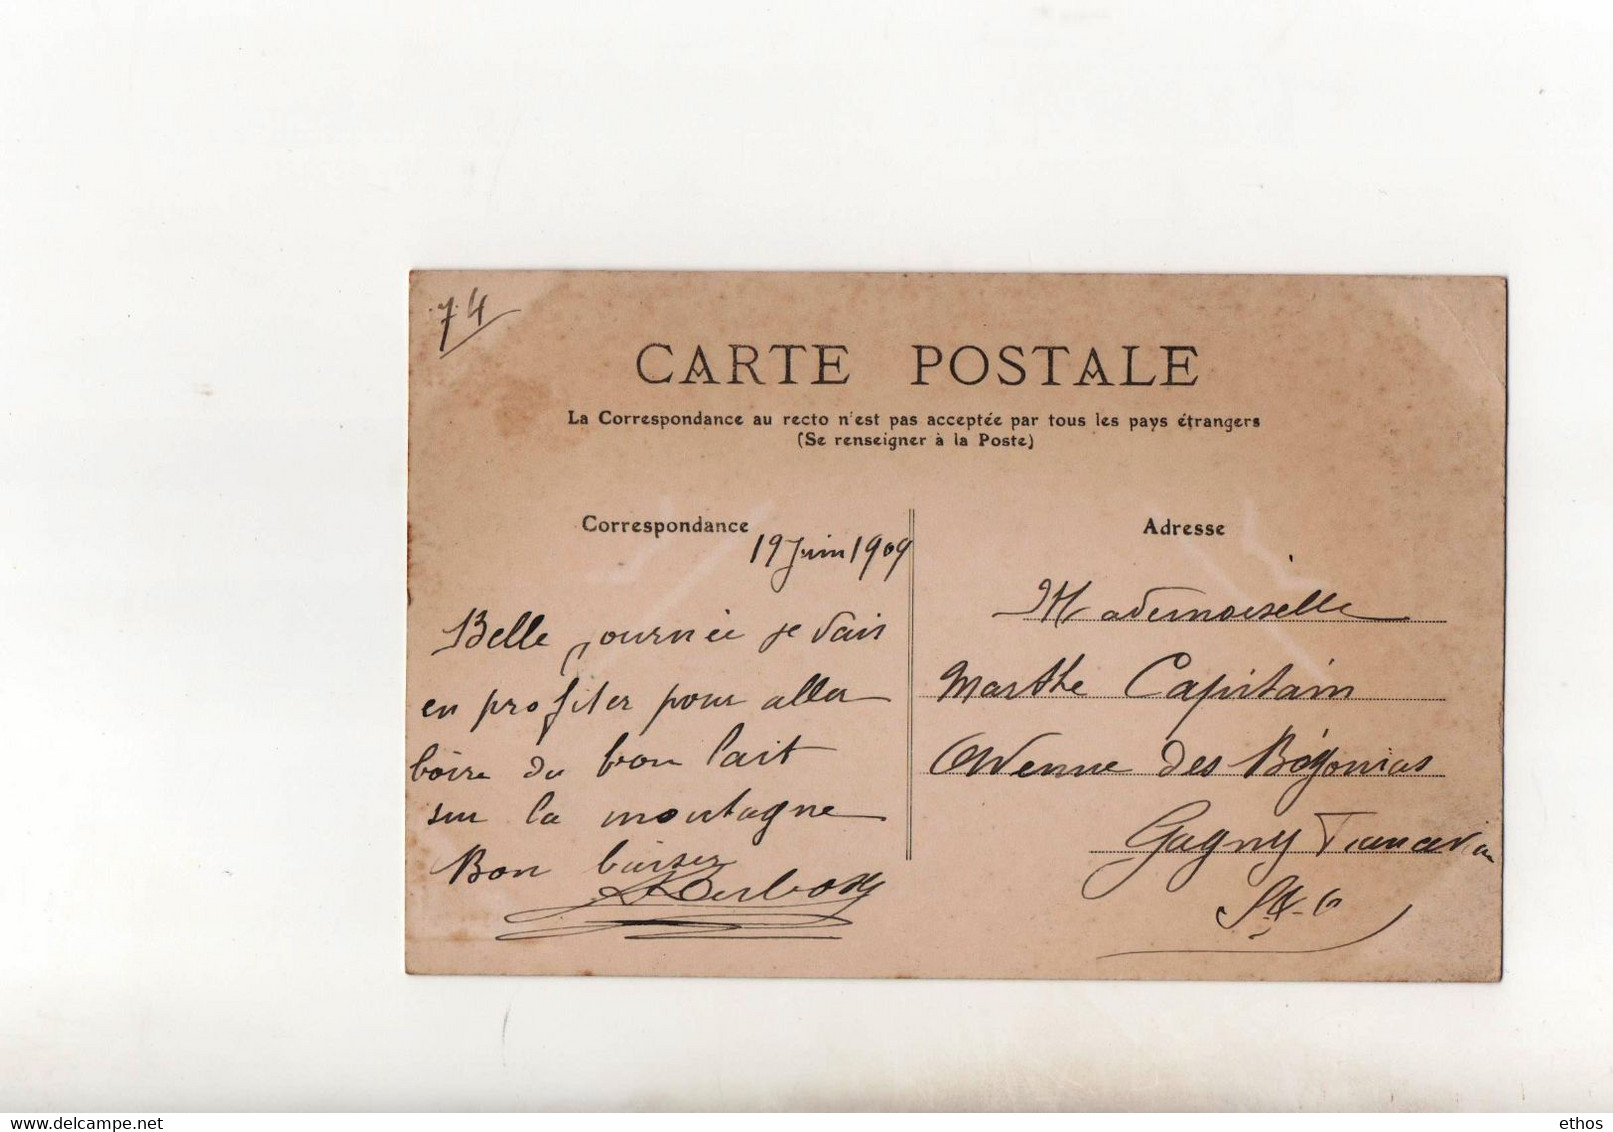 74
CARTE POSTALE
La Correspondance au recto n'est pas acceptée par tous les pays étrangers
(Se renseigner à la Poste)
Correspondance
19 Juin 1909
Belle journée je vais
en profiter pour aller
boire du bon lait
sur la montagne
Bon baisez
Adresse
Mademoiselle
Marthe Capitain
Avenue des Bégonias
Gagny
delcampe.net
ethos